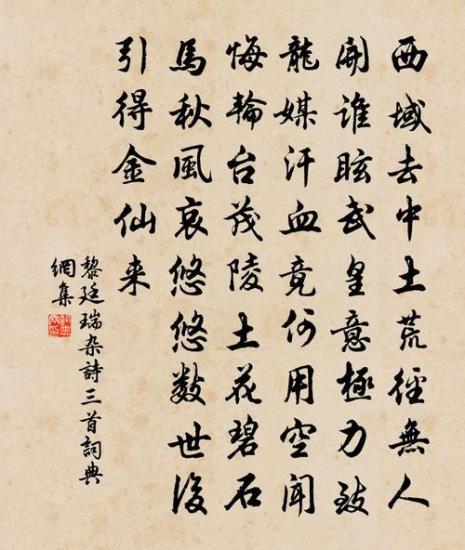 西域去中土荒徑無人
開誰眩武皇意極力致
龍媒汗血竟何用空聞
悔輪台茂陵土花碧石
馬秋風哀悠悠数世後
引得金仙来
黎廷瑞杂詩三首詞典
網集